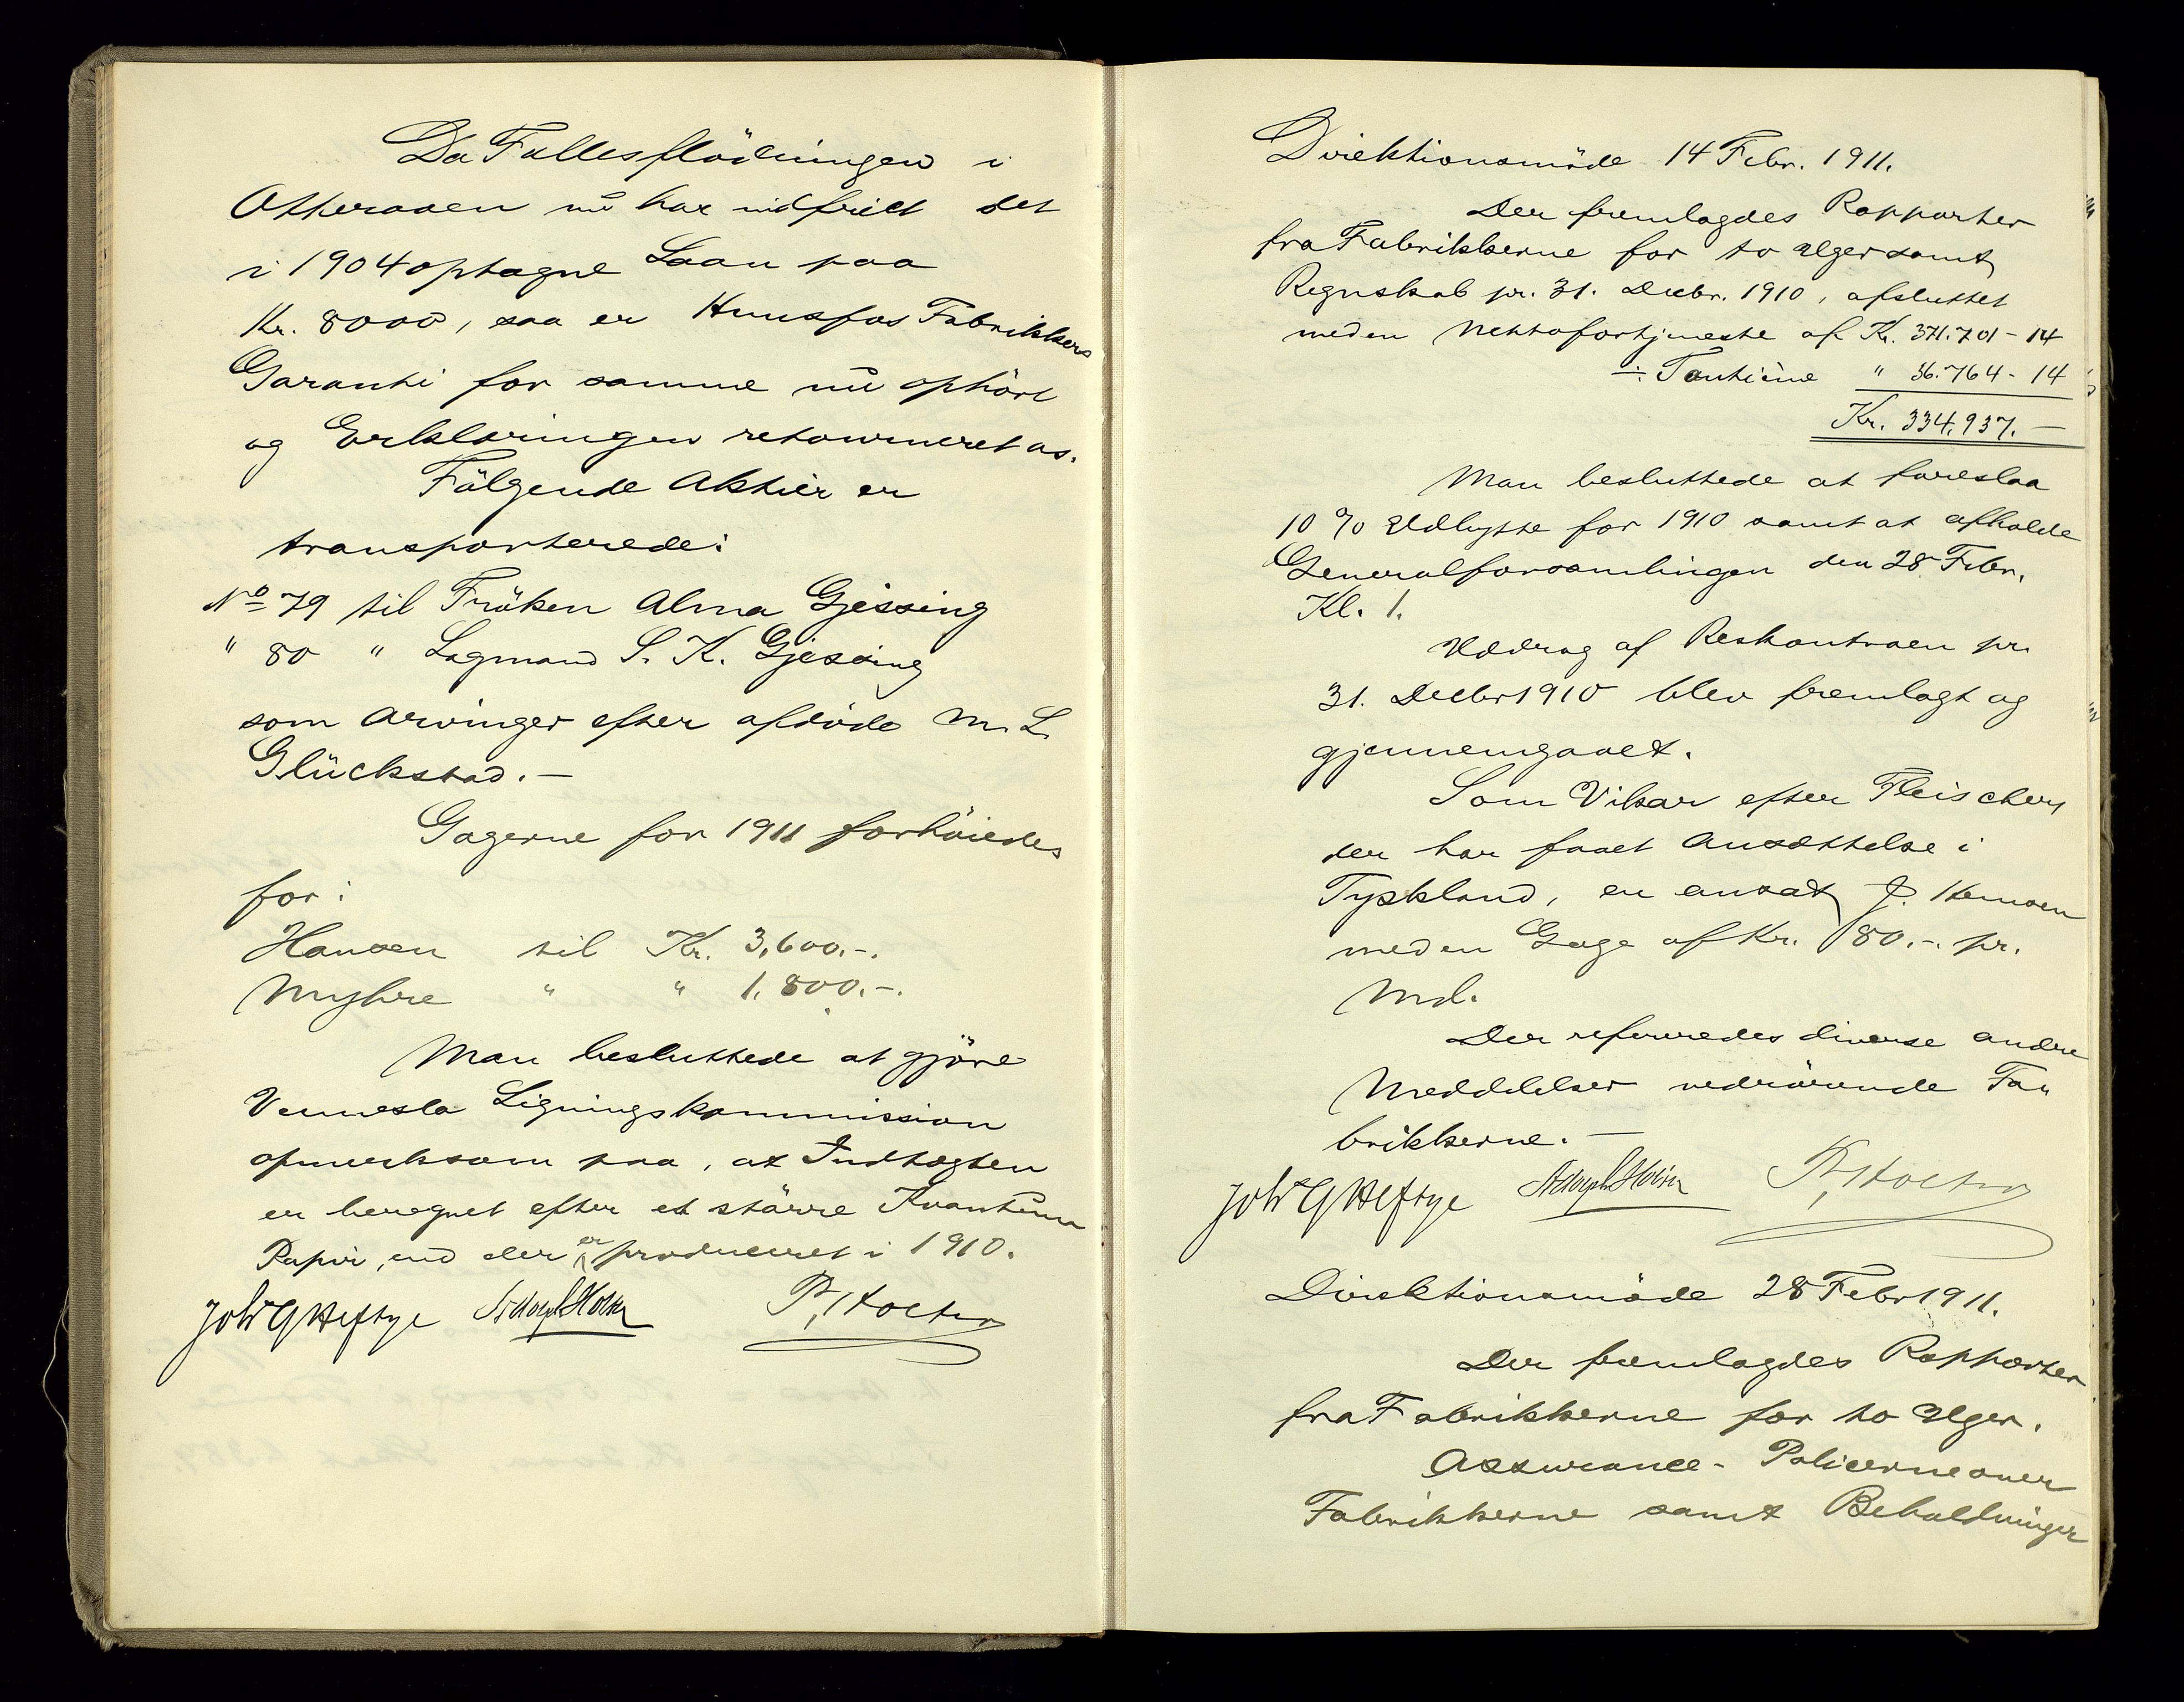 Da Fællesflödningen i
Otteraaen nu har indfriet det
i 1904 optagne Laan paa
Kr. 8000, saa er Hunsfos Fabrikkers
Garanti for samme nu ophört
og Erklæringen retourneret os.
Fölgende Aktier er
transporterede:
No 79 til Fröken Alma Gjessing
" 80 " Lagmand S. K. Gjessing
som Arvinger efter afdöde M. L.
Glückstad. —
Gagerne for 1911 forhöiedes
for:
Hansen til Kr. 3,600.-.
Myhre " " 1.800.-.
Man besluttede at gjöre
Vennesla Ligningskommission
opmerksom paa, at Indtægten
er beregnet efter et större Kvantum
Papir, end der er produceret i 1910.
Joh G Heftye Adolph Hoin P. Stoltz
Direktionsmöde 14 Febr. 1911.
Der fremlagdes Rapporter
fra Fabrikkerne for to Uger samt
Regnskab pr. 31. Decbr. 1910, afsluttet
med en Nettofortjeneste af Kr. 371.701-14
÷ Tantième " 36.764-14
Kr. 334.937.—
Man besluttede at foreslaa
10 % Udbytte for 1910 samt at afholde
Generalforsamlingen den 28 Febr.
Kl. 1.
Uddrag af Reskontroen pr.
31. Decbr 1910 blev fremlagt og
gjennemgaaet.
Som Vikar efter Fleischer,
der har faaet Ansættelse i
Tyskland, er ansat J.
med en Gage af Kr. 180.-. pr.
Md.
Der refereredes diverse andre
Meddelelser vedrörende Fa-
brikkerne. —
Joh G Heftye Adolph Hoin P. Stoltz
Direktionsmöde 28 Febr 1911.
Der fremlagdes Rapporter
fra Fabrikkerne for to Uger.
Assurance-Policerne over
Fabrikkerne samt Beholdninger